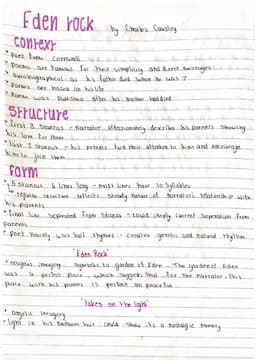 Eden rock by Charles Causley
Context
• Poet from Cornwall
• poems are famous for their simplicity and direct messages
• autobiographical as his father died when he was 7
• Poems are based on his life
• Poem was published after his mother had died
Structure
• first 3 stanzas - narrator affectionately describes his parents showing
his love for them
• last 2 stanzas - his parents turn their attention to him and encourage
him to join them
form
• 5 stanzas 4 lines long - most lines have 10 syllables
regular structure reflects steady nature of narrator's relationship with
his parents
• final line separated from stanza - could imply current separation from
parents
• poet mainly uses half rhymes - creates gentle and natural rhythm
'Eden Rock'
• religious imagery - symbolic to garden of Eden. The garden of Eden
was a perfect place, which suggests that for the narrator this
place with his parents is perfect or peaceful.
'takes on the light'
• angelic imagery
• light in his mothers hair could show its a nostalgic memory